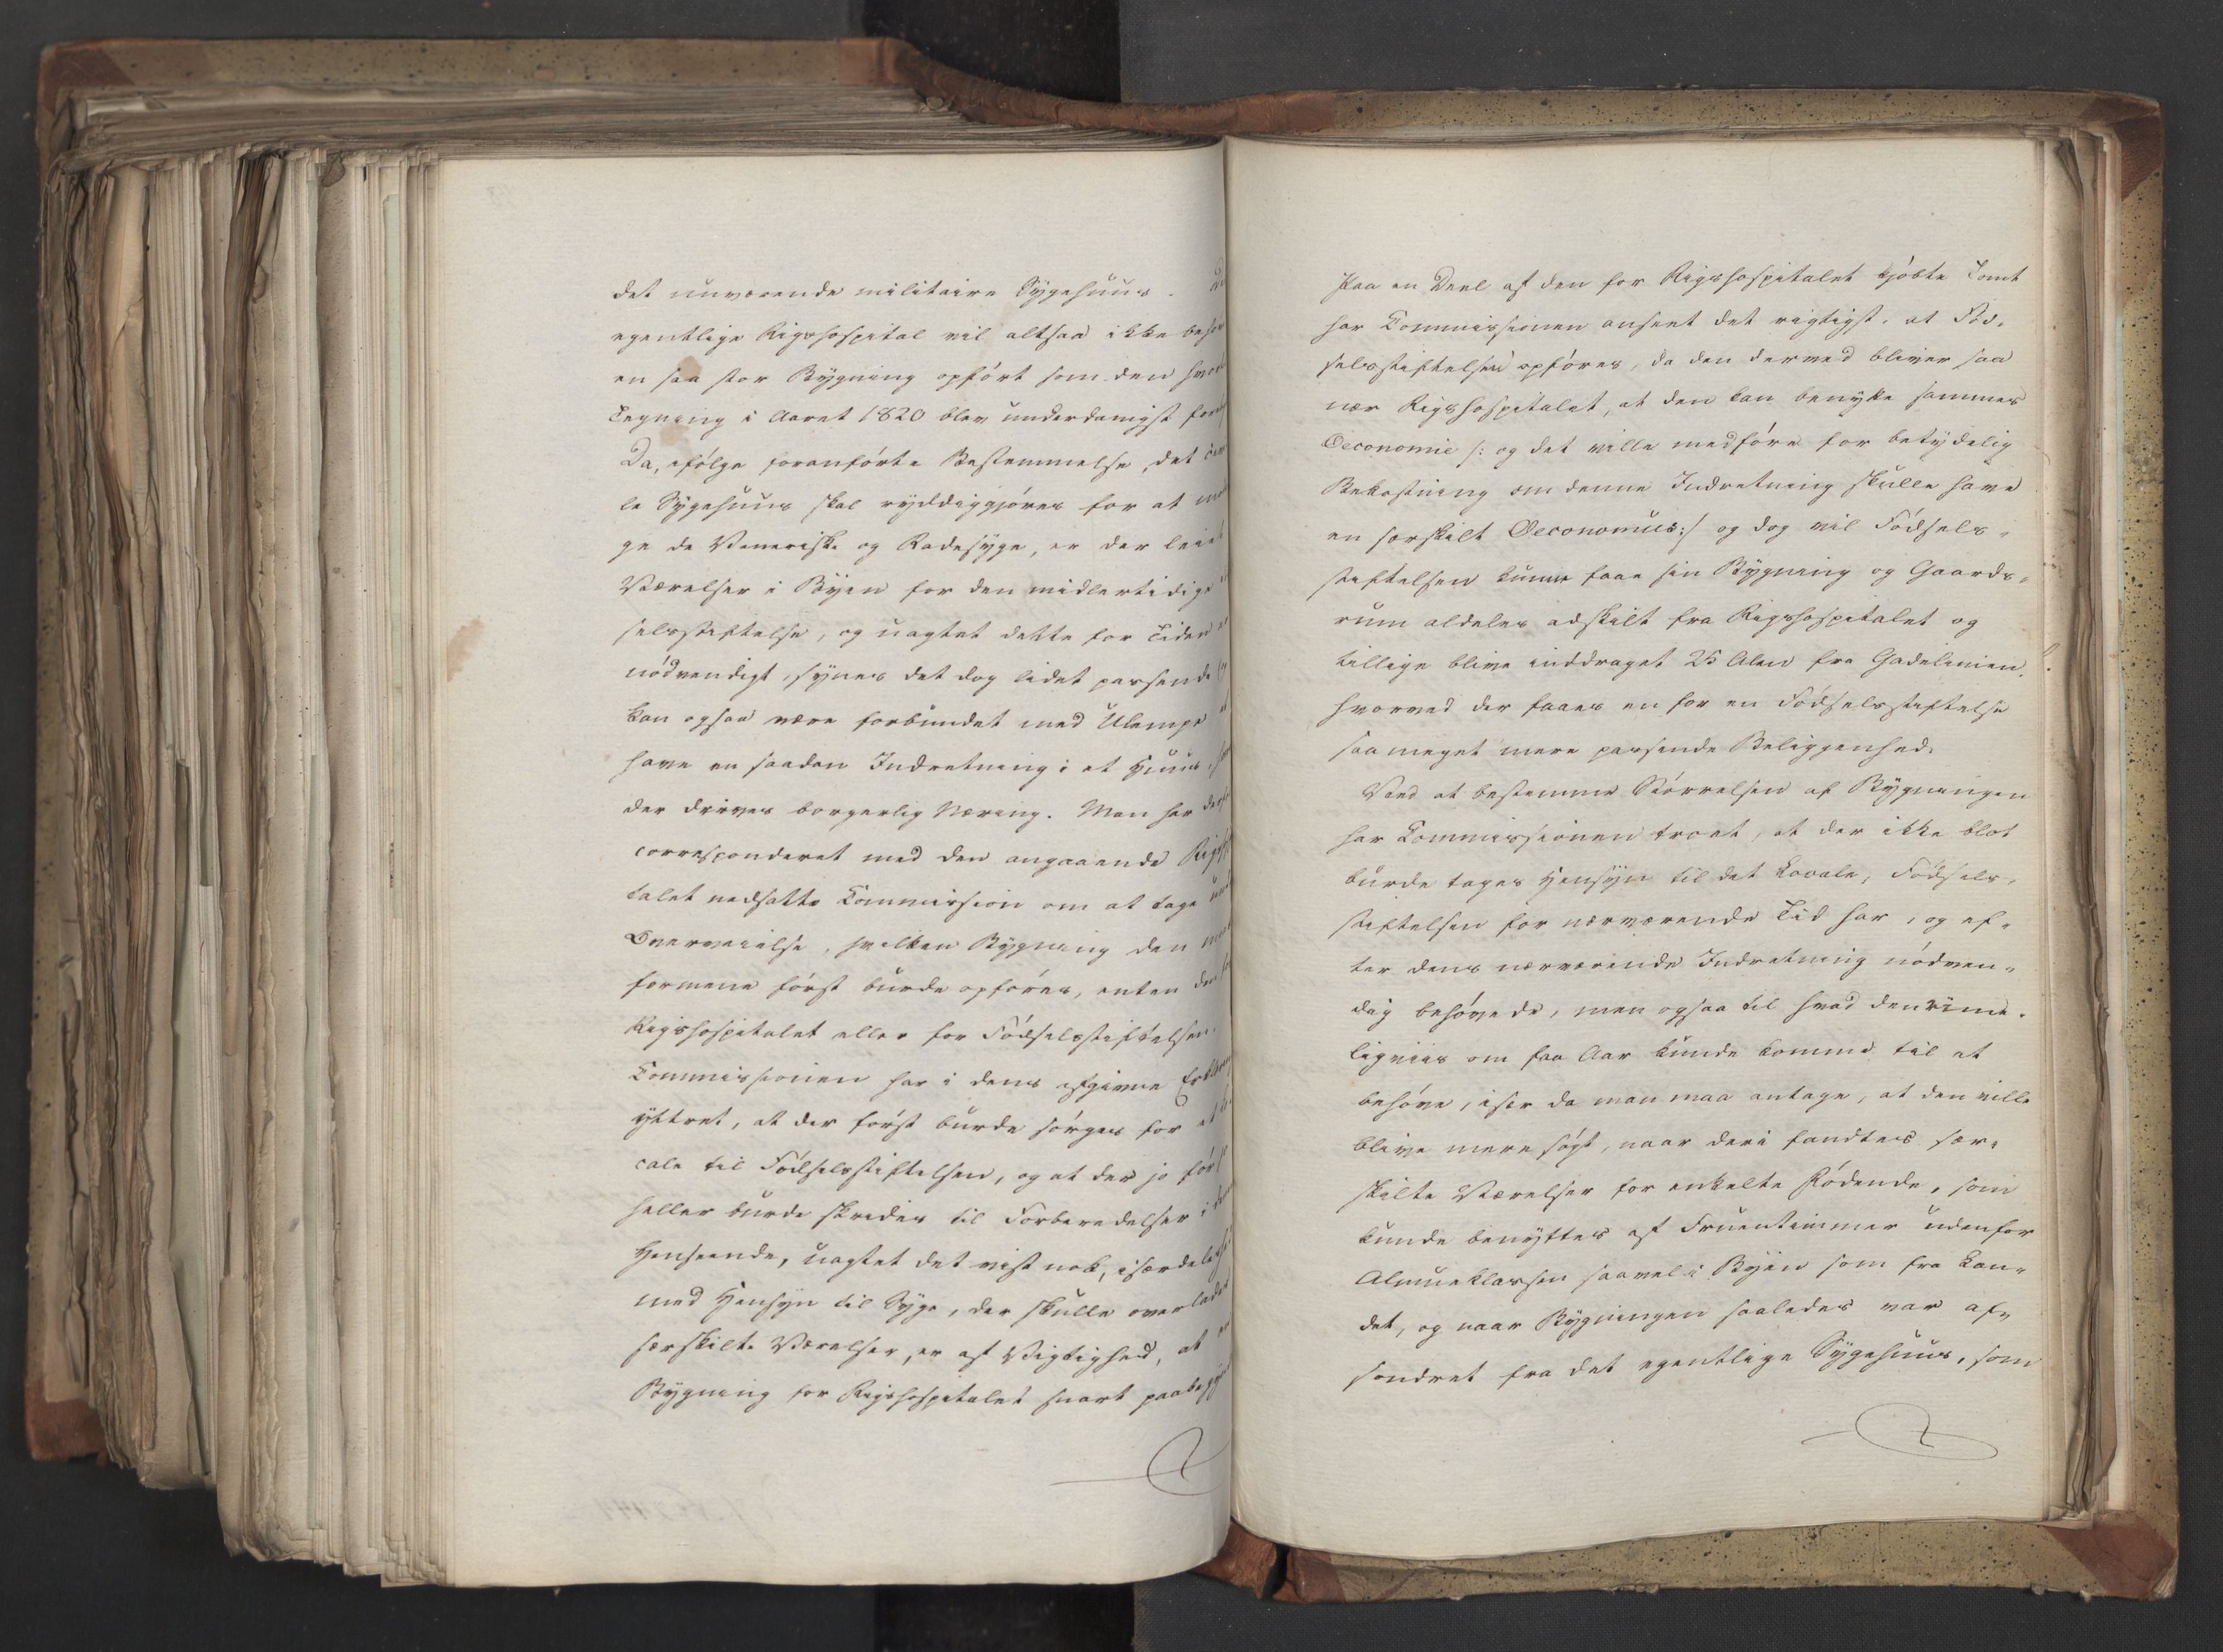 det nuværende militaire Sygehuus.
egentlige Rigshospital vil altsaa ikke behø
en saa stor Bygning opført som den hvor
Tegning i Aaret 1820 blev underdanigst
Da, ifølge foranførte Bestemmelse, det
le Sygehuus skal ryddiggjøres for at
ge de Veneriske og Radesyge, er der leiet
Værelser i Byen for den midlertidige
selsstiftelse, og uagtet dette for Tiden
nødvendigt, synes det dog lidet passende
kan ogsaa være forbundet med Ulempe
have en saadan Indretning i et Huus,
der drives borgerlig Næring. Man har
correspondert med den angaaende Rigs
talet nedsatte Commission om at tage
Overveielse, hvilken Bygning den
formene først burde opføres, enten
Rigshospitalet eller for Fødselsstiftelsen.
Commissionen har i dens afgivne
yttret, at der først burde sørges for
cale til Fødselsstiftelsen, og at der jo før
heller burde skrides til Forberedelser i
Henseende, uagtet det vist nok, isærdeles
med Hensyn til Syge, der skulle overlades
særskilte Værelser, er af Vigtighed, at
Bygning for Rigshospitalet snart paabegy
Paa en Deel af den for Rigshospitalet kjøbte Tomt
har Commissionen anseet det rigtigst, at Fød-
selsstiftelsen opføres, da den derved bliver saa
nær Rigshospitalet, at den kan benytte sammes
Oeconomie /: og det ville medføre for betydelig
Bekostning om denne Indretning skulle have
en særskilt Oeconomus :/ og dog vil Fødsels-
stiftelsen kunne faae sin Bygning og Gaards-
rum aldeles adskilt fra Rigshospitalet og
tillige blive inddraget 25 Alen fra Gadelinien,
hvorved der faaes en for en Fødselsstiftelse
saa meget mere passende Beliggenhed.
Ved at bestemme Størrelsen af Bygningen
har Commissionen troet, at der ikke blot
burde tages Hensyn til det Locale, Fødsels-
stiftelsen for nærværende Tid har, og ef-
ter dens nærværende Indretning nødven-
dig behøvede, men ogsaa til hvad den rime-
ligviis om faa Aar kunde komme til at
behøve, især da man maa antage, at den ville
blive mere søgt, naar deri fandtes sær-
skilte Værelser for enkelte Fødende, som
kunde benyttes af Fruentimmer udenfor
Almueklassen saavel i Byen som fra Lan-
det, og naar Bygningen saaledes var af-
sondret fra det egentlige Sygehuus, som